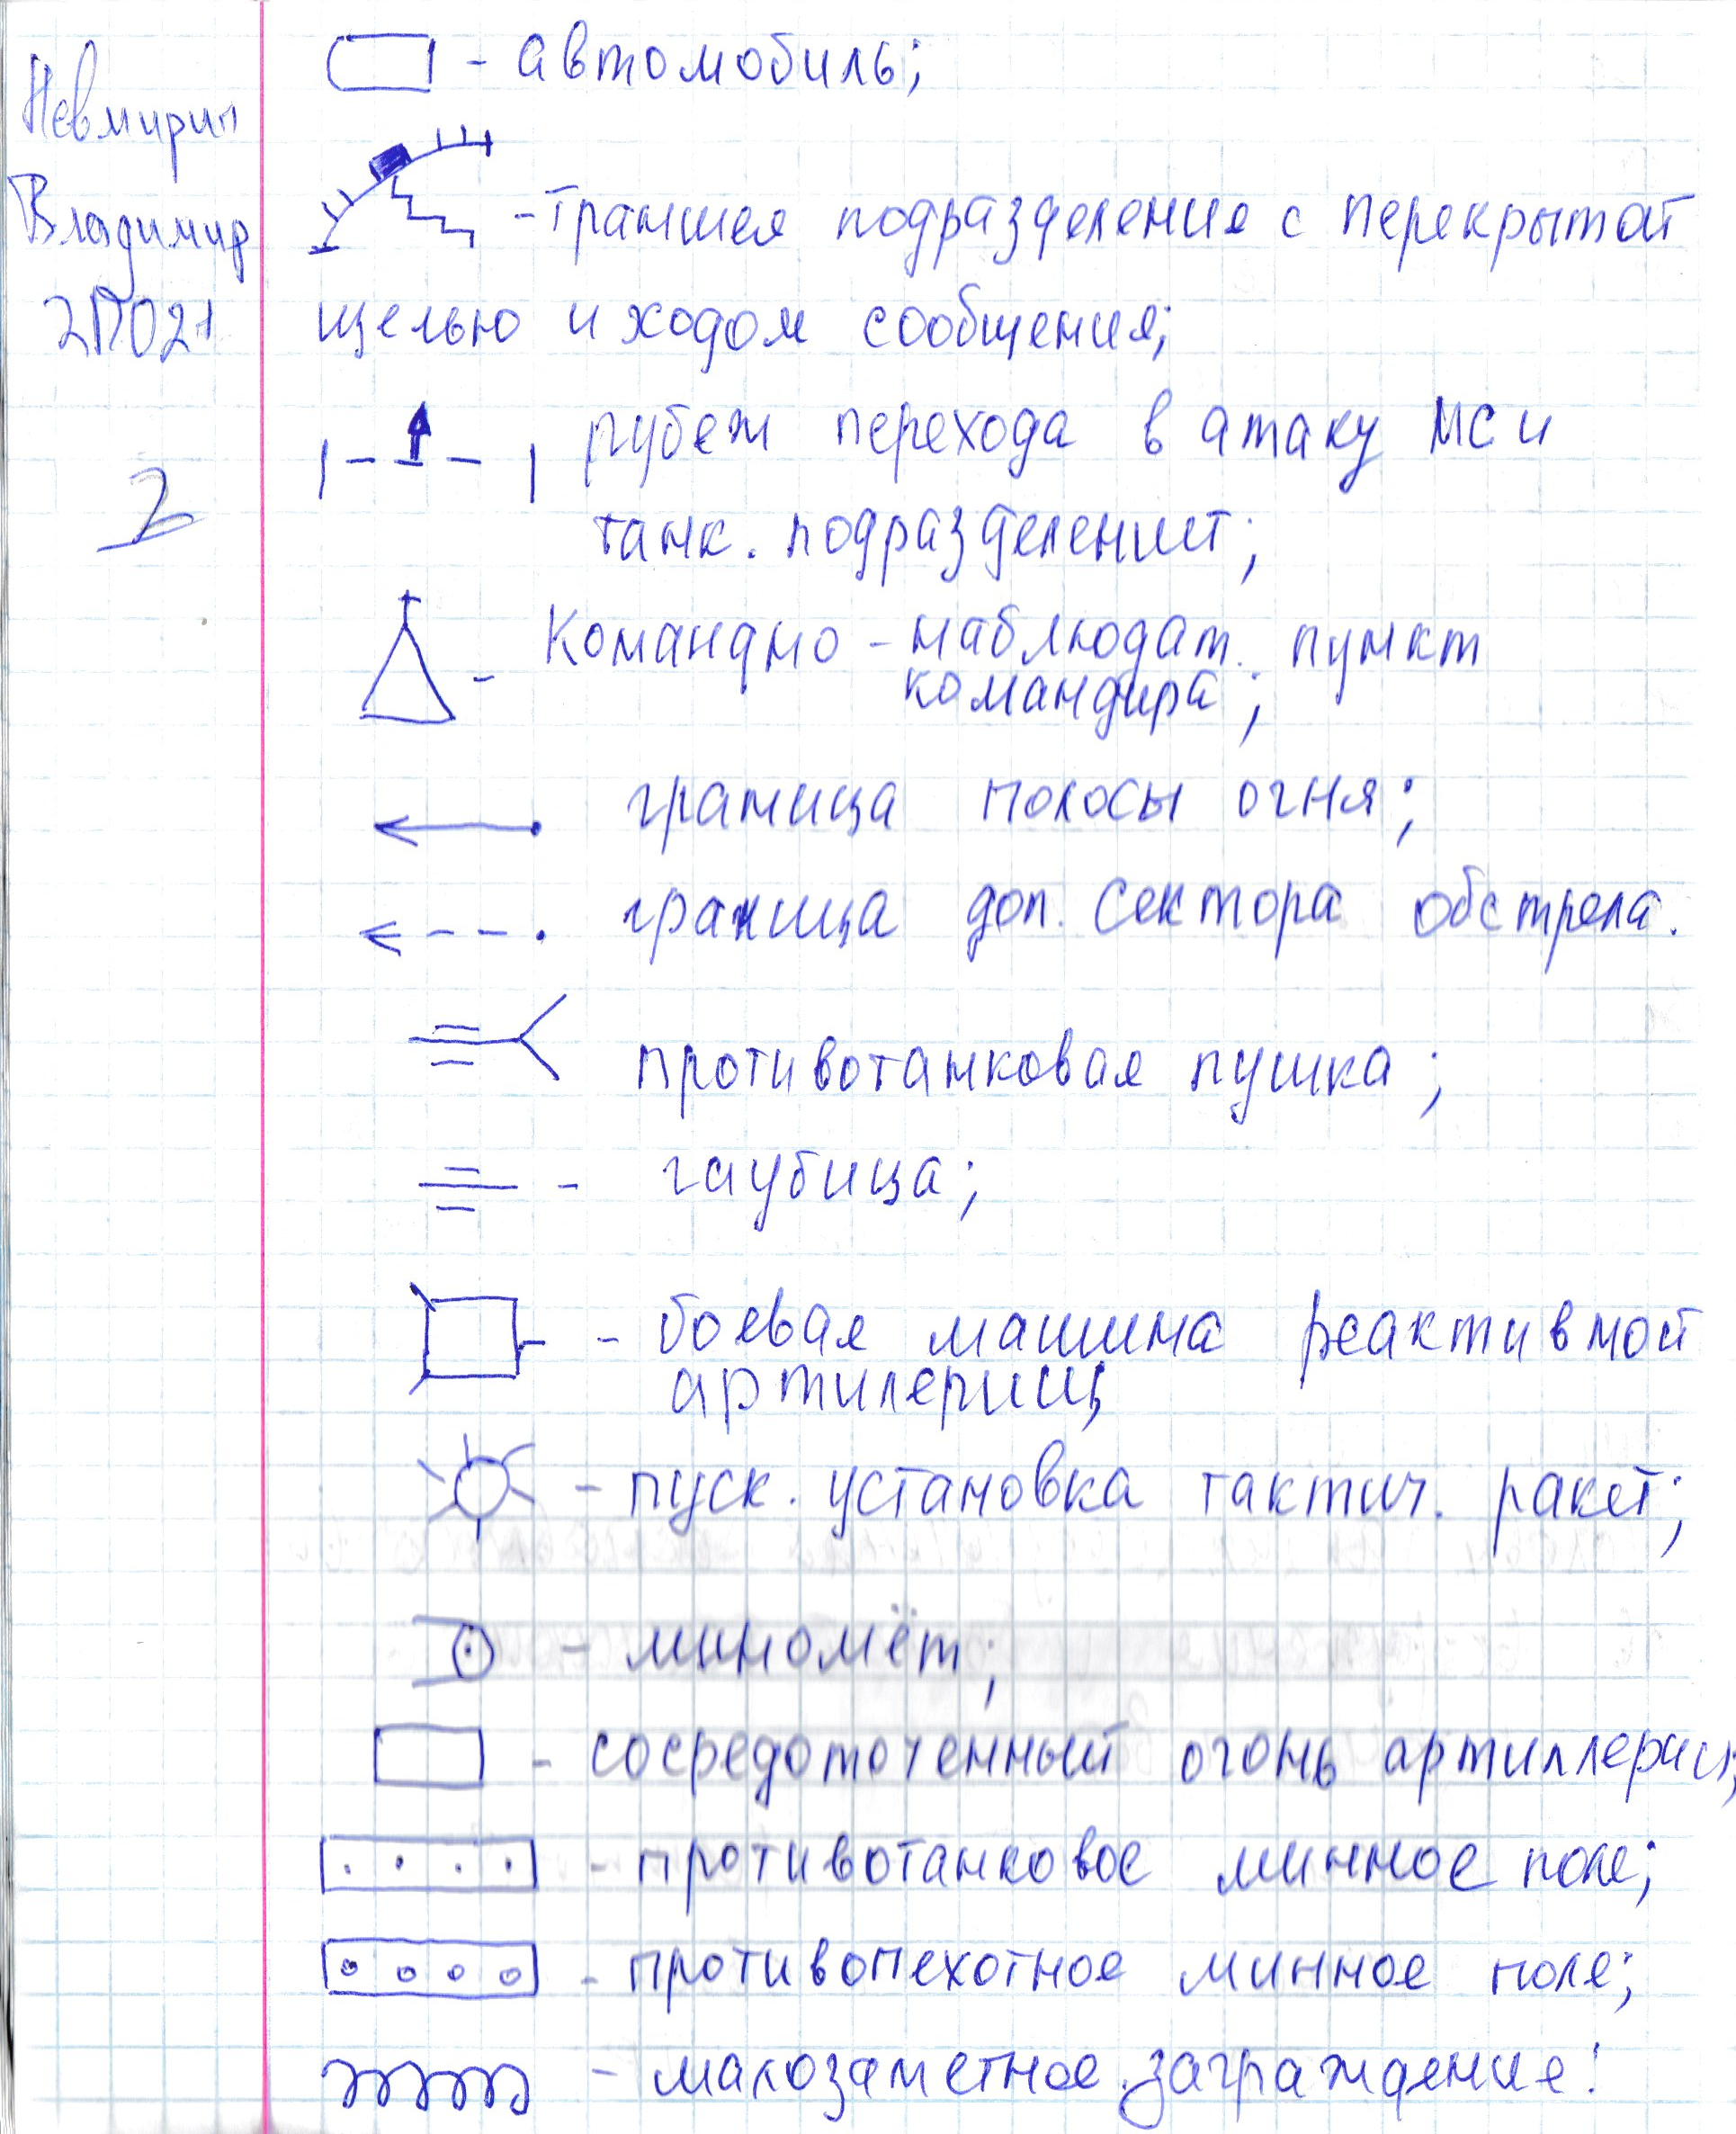 Невмирич
Владимир
2П021
2
- автомобиль;
- траншея подразделение с перекрытой
щелью и ходом сообщения;
рубеж перехода в атаку МС и
танк. подразделений;
- Командно - наблюдат. пункт
командира;
граница полосы огня;
граница доп. сектора обстрела.
противотанковая пушка;
- гаубица;
- боевая машина реактивной
артилерии;
- пуск. установка тактич. ракет;
- миномёт;
- сосредоточенный огонь артиллерии;
- противотанковое минное поле;
- противопехотное минное поле;
- малозаметное заграждение!